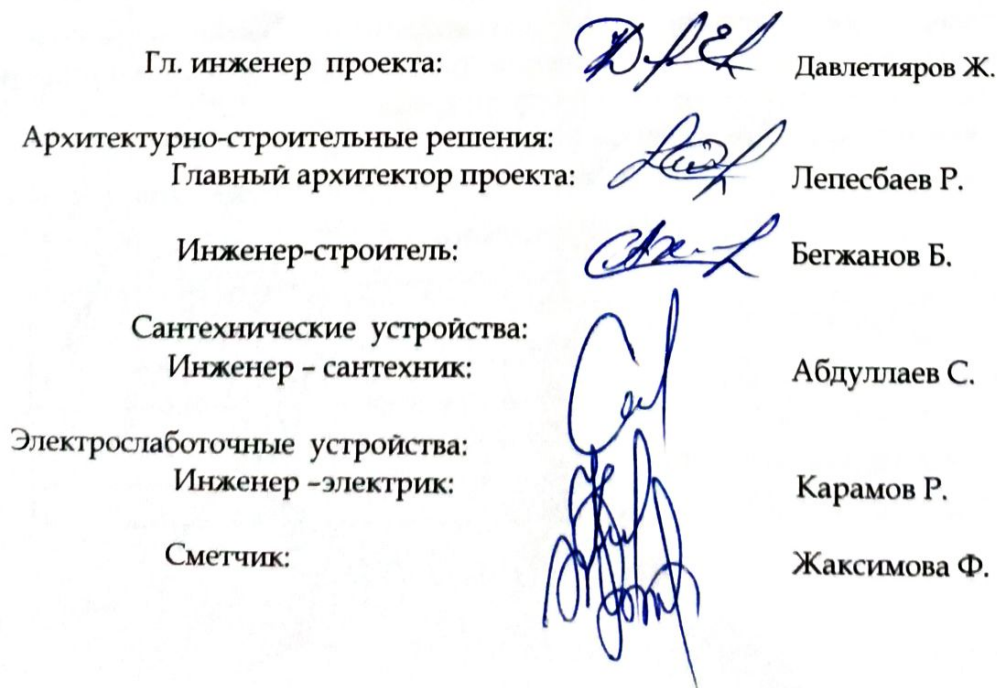 Гл. инженер проекта: Давлетияров Ж.
Архитектурно-строительные решения:
Главный архитектор проекта: Лепесбаев Р.
Инженер-строитель: Бегжанов Б.
Сантехнические устройства:
Инженер – сантехник: Абдуллаев С.
Электрослаботочные устройства:
Инженер –электрик: Карамов Р.
Сметчик: Жаксимова Ф.